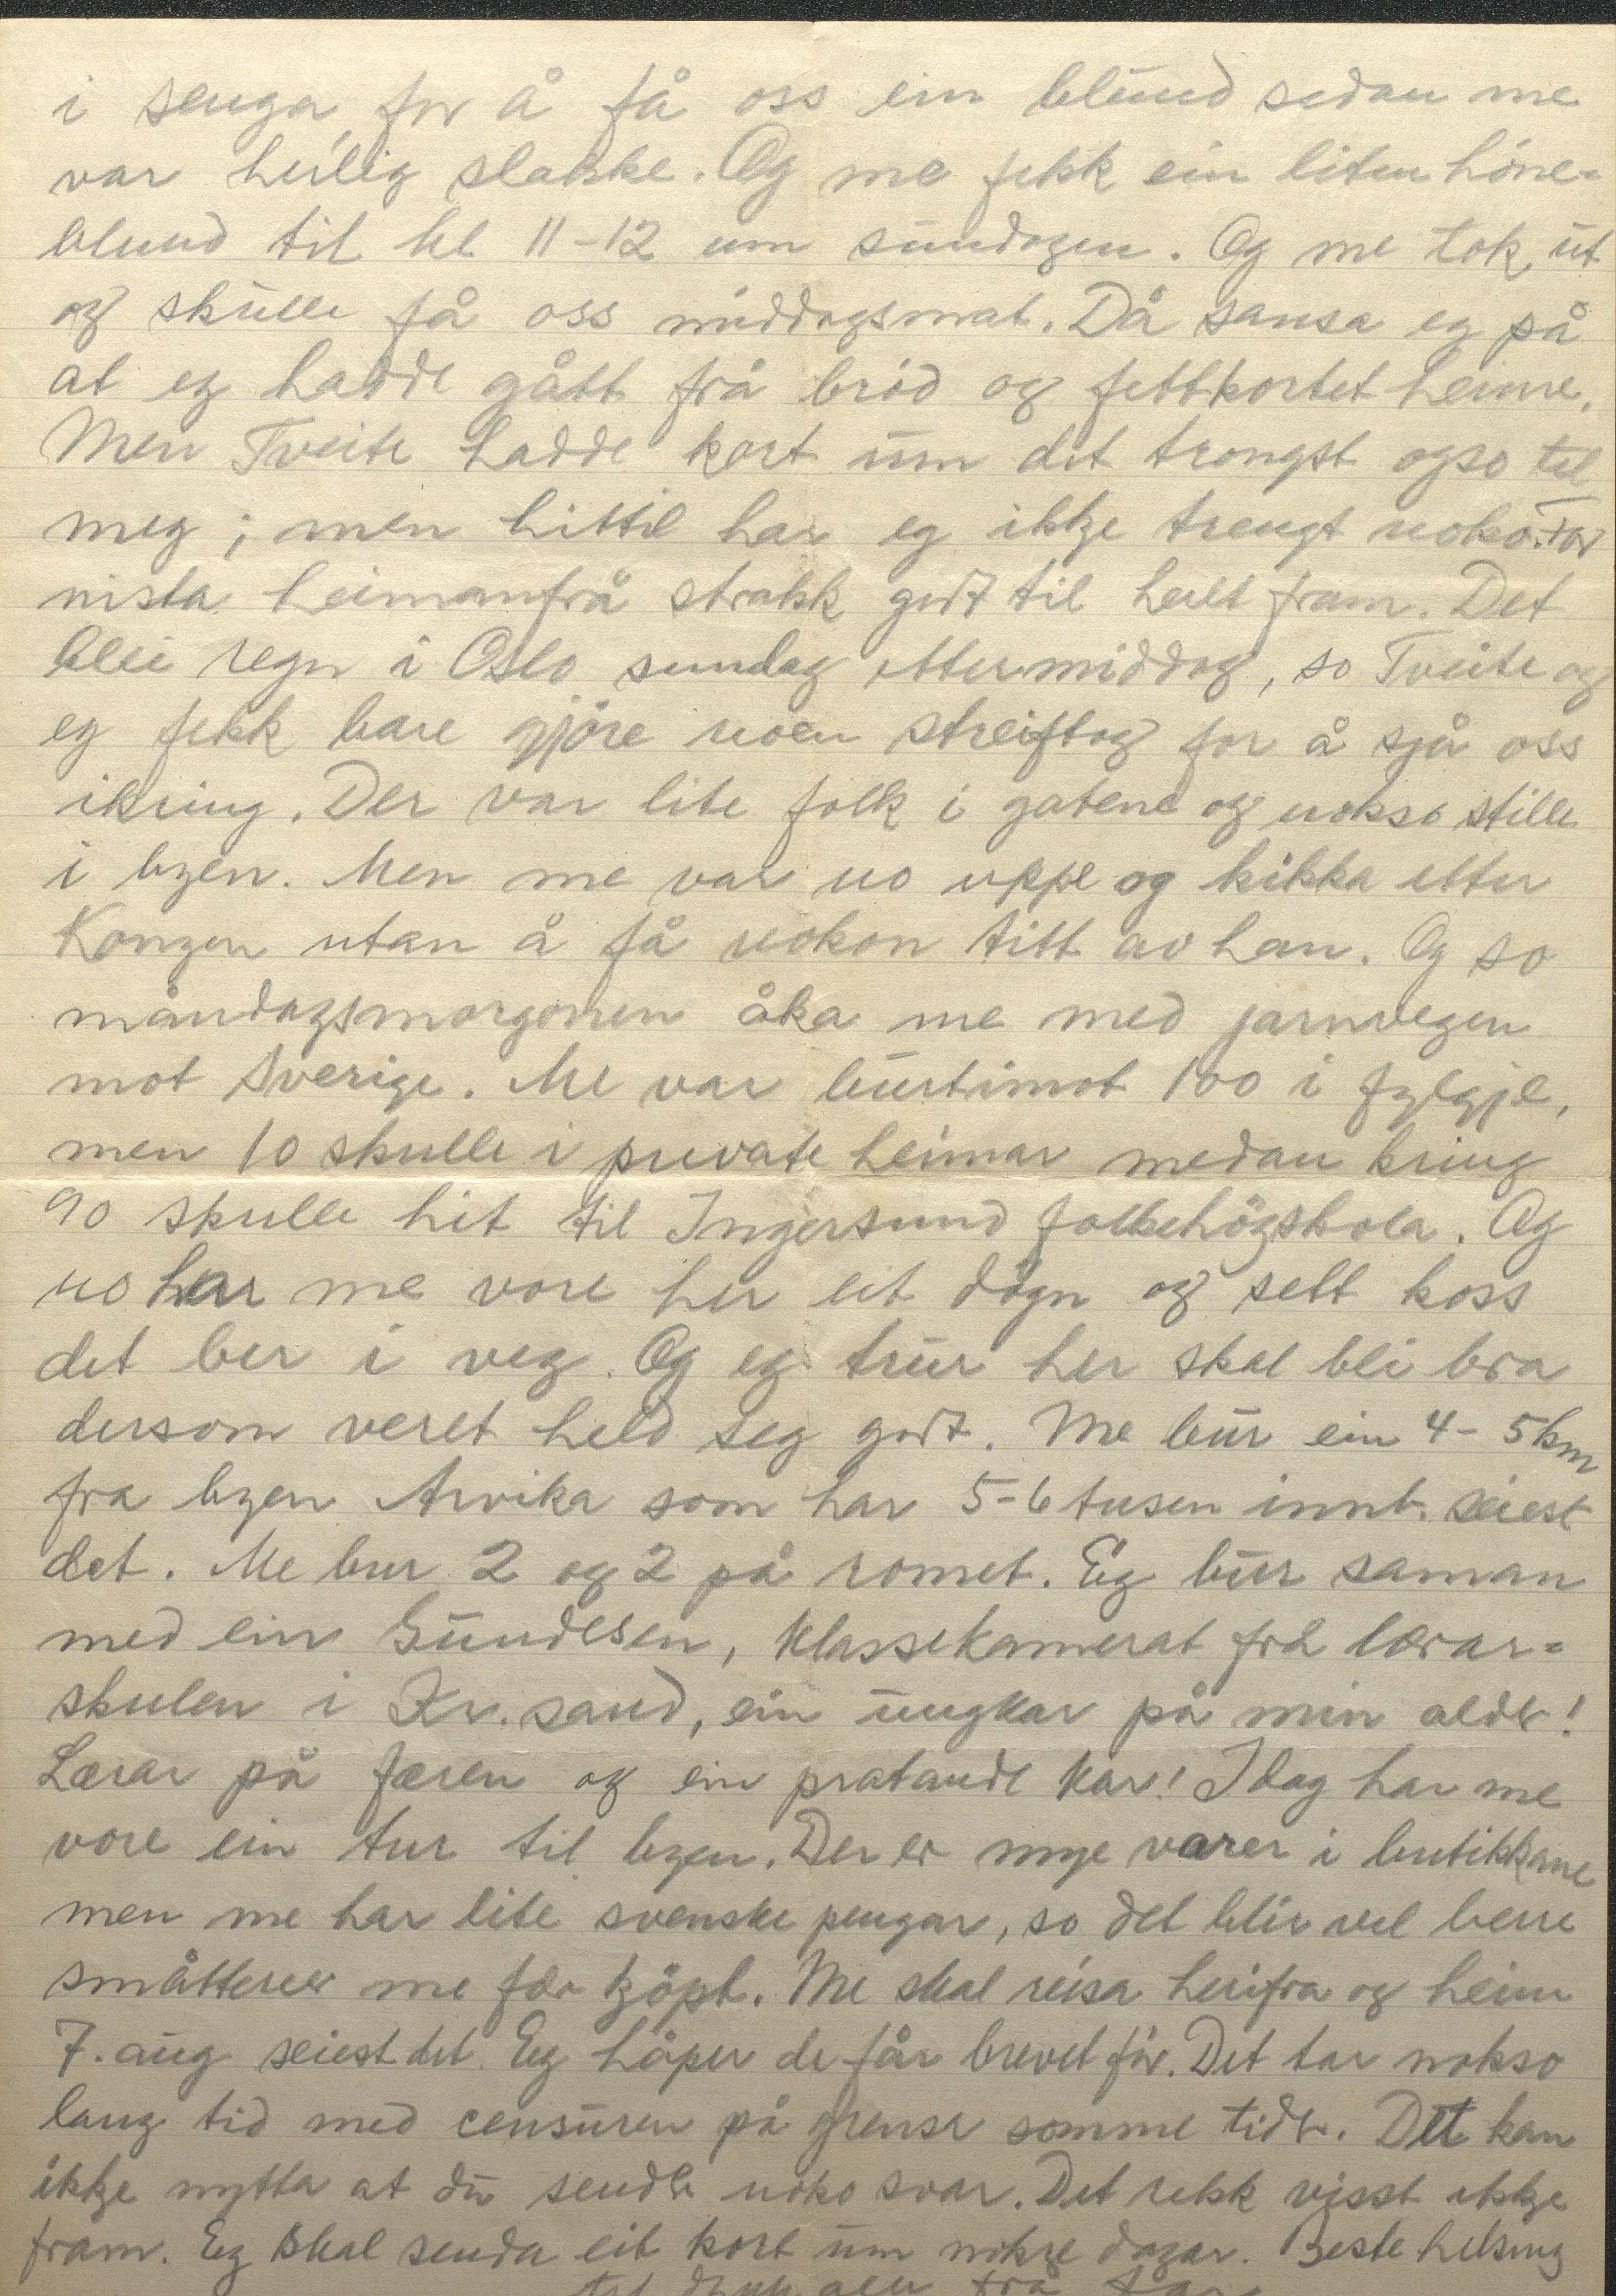 i senga for å få oss ein blund sidan me
var heilig slakke. Og me fekk ein liten høne-
blund til kl 11-12 um sundagen. Og me tok ut
og skulle få oss middagsmat. Då sansa eg på
at eg hadde gått frå bröd og fettkortet heime.
Men Tveite hadde kort um det trongst ogso til
meg; men hittil har eg ikkje trengt noko. For
nista heimanfrå strakk godt til heilt fram. Det
blei regn i Oslo sundag ettermiddag, so Tveite og
eg fekk bare gjöre noen streiftog for å sjå oss
ikring. Der var lite folk i gatene og nokso stille
i byen. Men me var no uppe og kikka etter
Kongen utan å få nokon titt av han. Og so
måndagsmorgonen åka me med jarnvegen
mot Sverige. Me var burtimot 100 i fylgje,
men 10 skulle i private heimar medan kring
90 skulle hit til Ingersund folkehögskola. Og
no har me vore her eit dögn og sett koss
det ber i veg. Og eg trur her skal bli bra
dersom veret held seg godt. Me bur ein 4-5 km
fra byen Arvika som har 5-6 tusen innb. seiest
det. Me bur 2 og 2 på romet. Eg bur saman
med ein Gundesen, klassekamerat frå lærar-
skulen i Kr.sand, ein ungkar på min alder!
Lærar på færen og ein pratande kar! Idag har me
vore ein tur til byen. Der er mye varer i butikkane
men me har lite svenske pengar, so det blir vel berre
småtterier me får kjöpt. Me skal reisa herifra og heim
7. aug seiest det. Eg håper de får brevet för. Det tar nokso
lang tid med censuren på grensa somme tider. Det kan
ikkje nytta at du sender noko svar. Det rekk visst ikkje
fram. Eg skal senda eit kort um nokre dagar. Beste helsing
til dykk alle frå